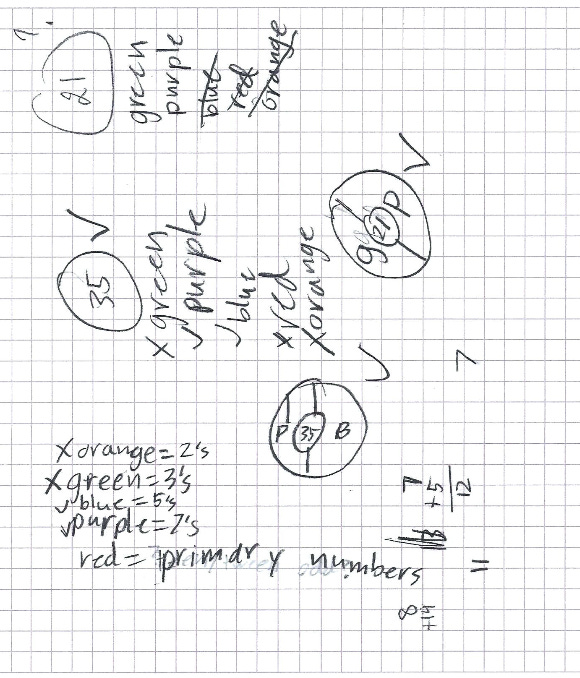 1.
21
green
purple
blue
red
orange
35
x green
✓ purple
✓ blue
x red
x orange
g 21 p
P 35 B
7
x orange = 2's
x green = 3's
✓ blue = 5's
✓ purple = 7's
red = primary numbers
7
+5
12
=
8